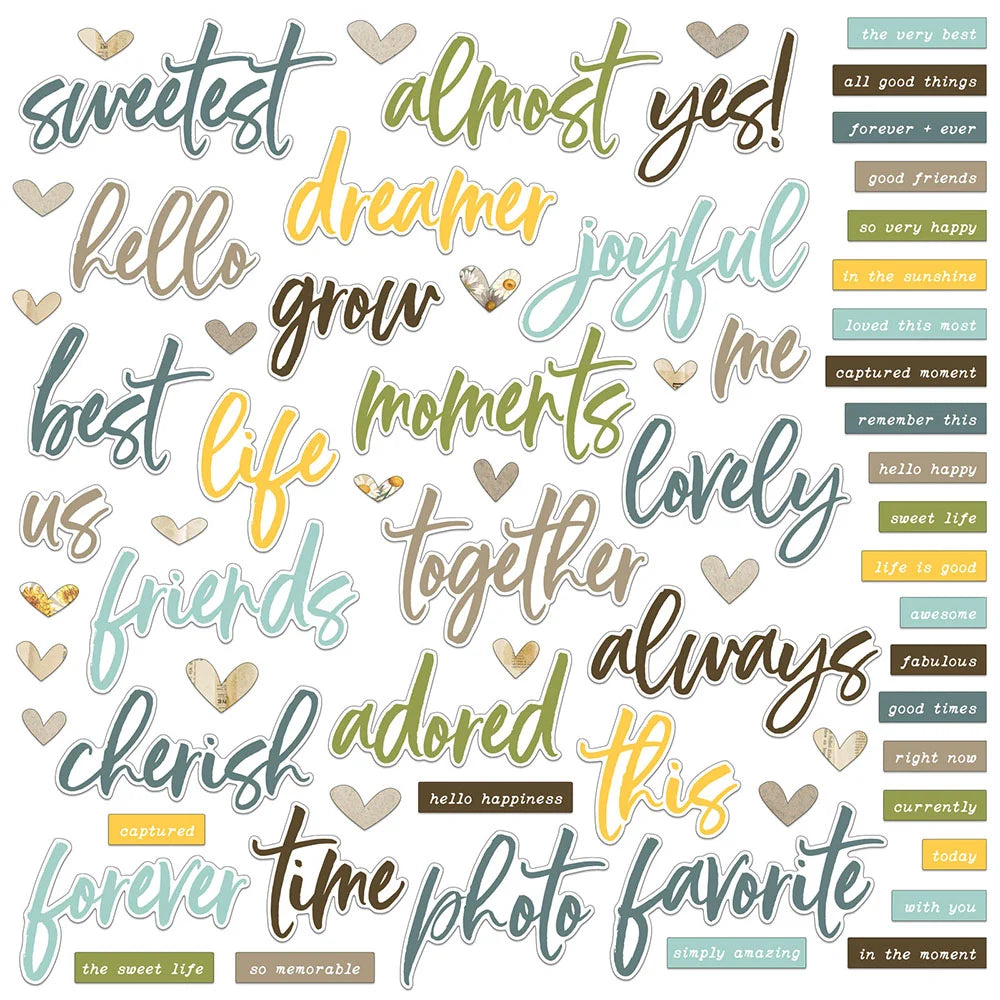 sweetest
almost
yes!
hello
dreamer
joyful
grow
me
best
life
moments
lovely
us
together
friends
always
cherish
adored
this
hello happiness
captured
forever
time
photo
favorite
the sweet life
so memorable
simply amazing
the very best
all good things
forever + ever
good friends
so very happy
in the sunshine
loved this most
captured moment
remember this
hello happy
sweet life
life is good
awesome
fabulous
good times
right now
currently
today
with you
in the moment